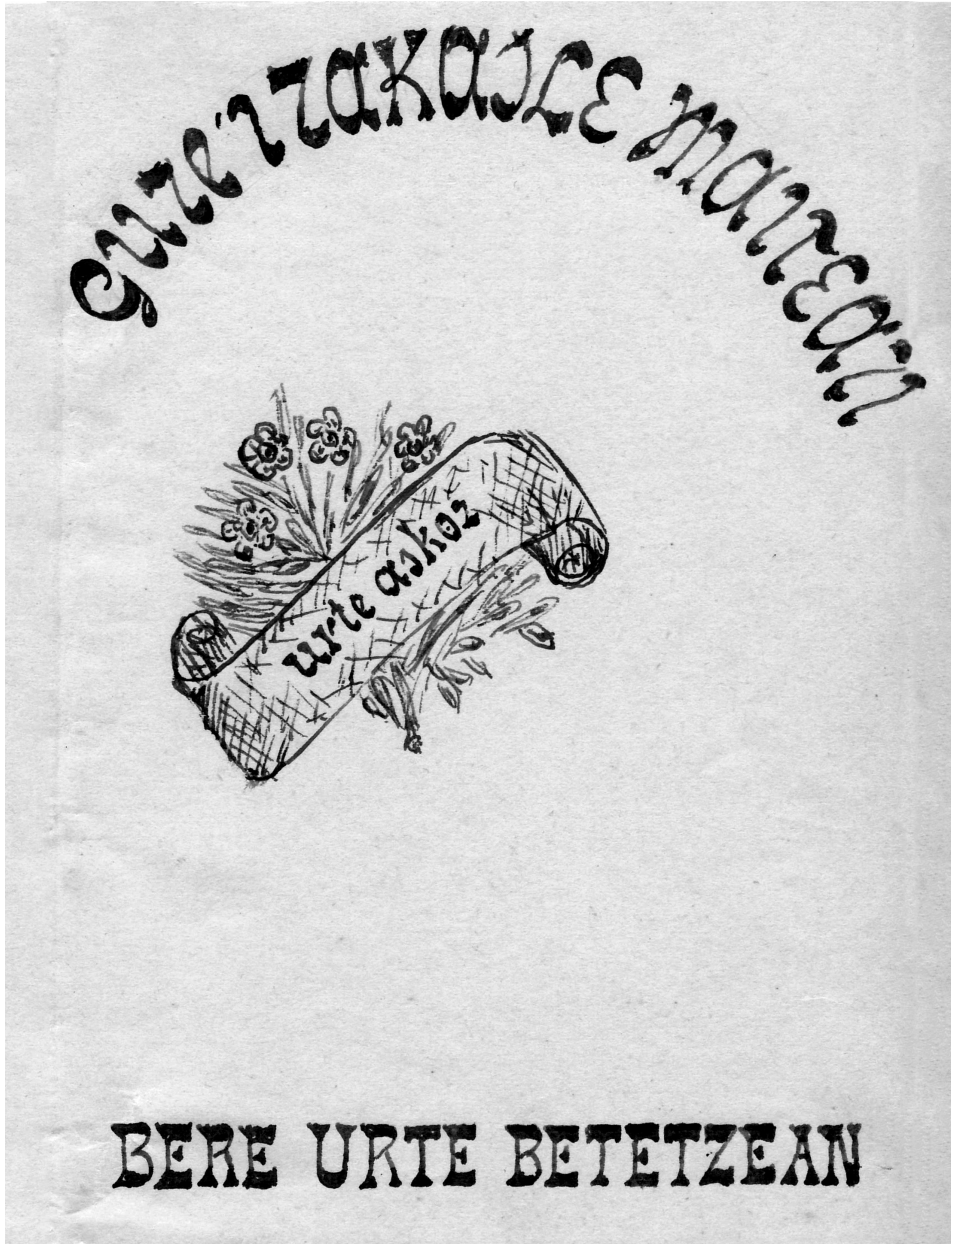 gure irakasle maitean
urte askoz
BERE URTE BETETZEAN